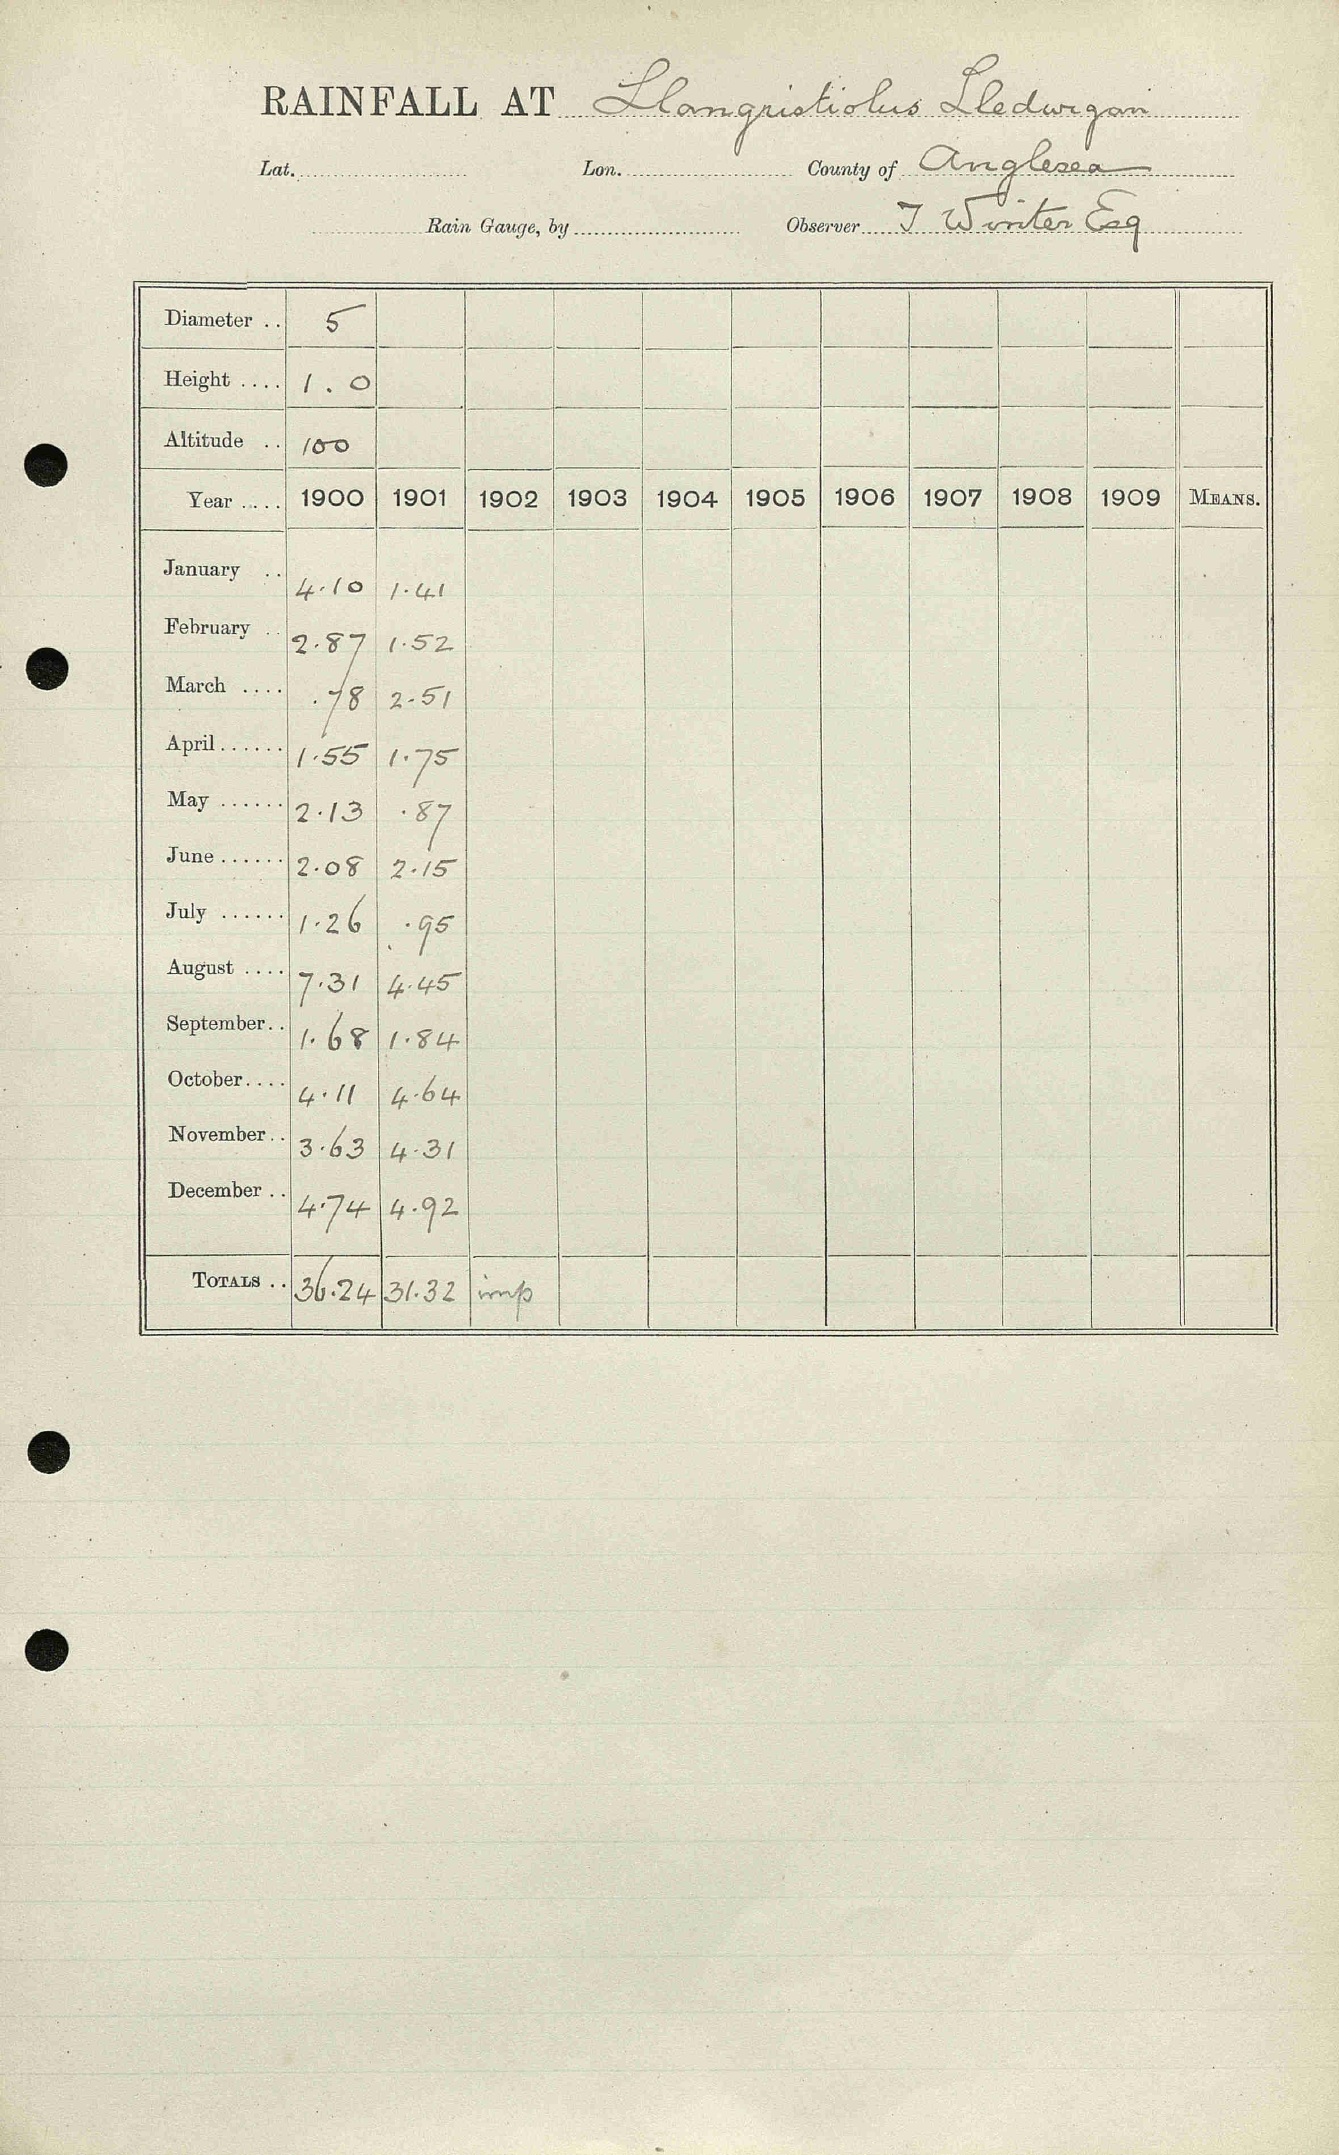 RAINFALL AT Llangristiolus Lledwigan
Lat. Lon. County of Anglesea
Rain Gauge, by Observer T Winter Esq
Diameter .. 5
Height .... 1.0
Altitude .. 100
Year .... 1900 1901 1902 1903 1904 1905 1906 1907 1908 1909 MEANS.
January .. 4.10 1.41
February .. 2.87 1.52
March .... .78 2.51
April ...... 1.55 1.75
May ...... 2.13 .87
June ...... 2.08 2.15
July ...... 1.26 .95
August .... 7.31 4.45
September .. 1.68 1.84
October .... 4.11 4.64
November .. 3.63 4.31
December .. 4.74 4.92
TOTALS .. 36.24 31.32 imp